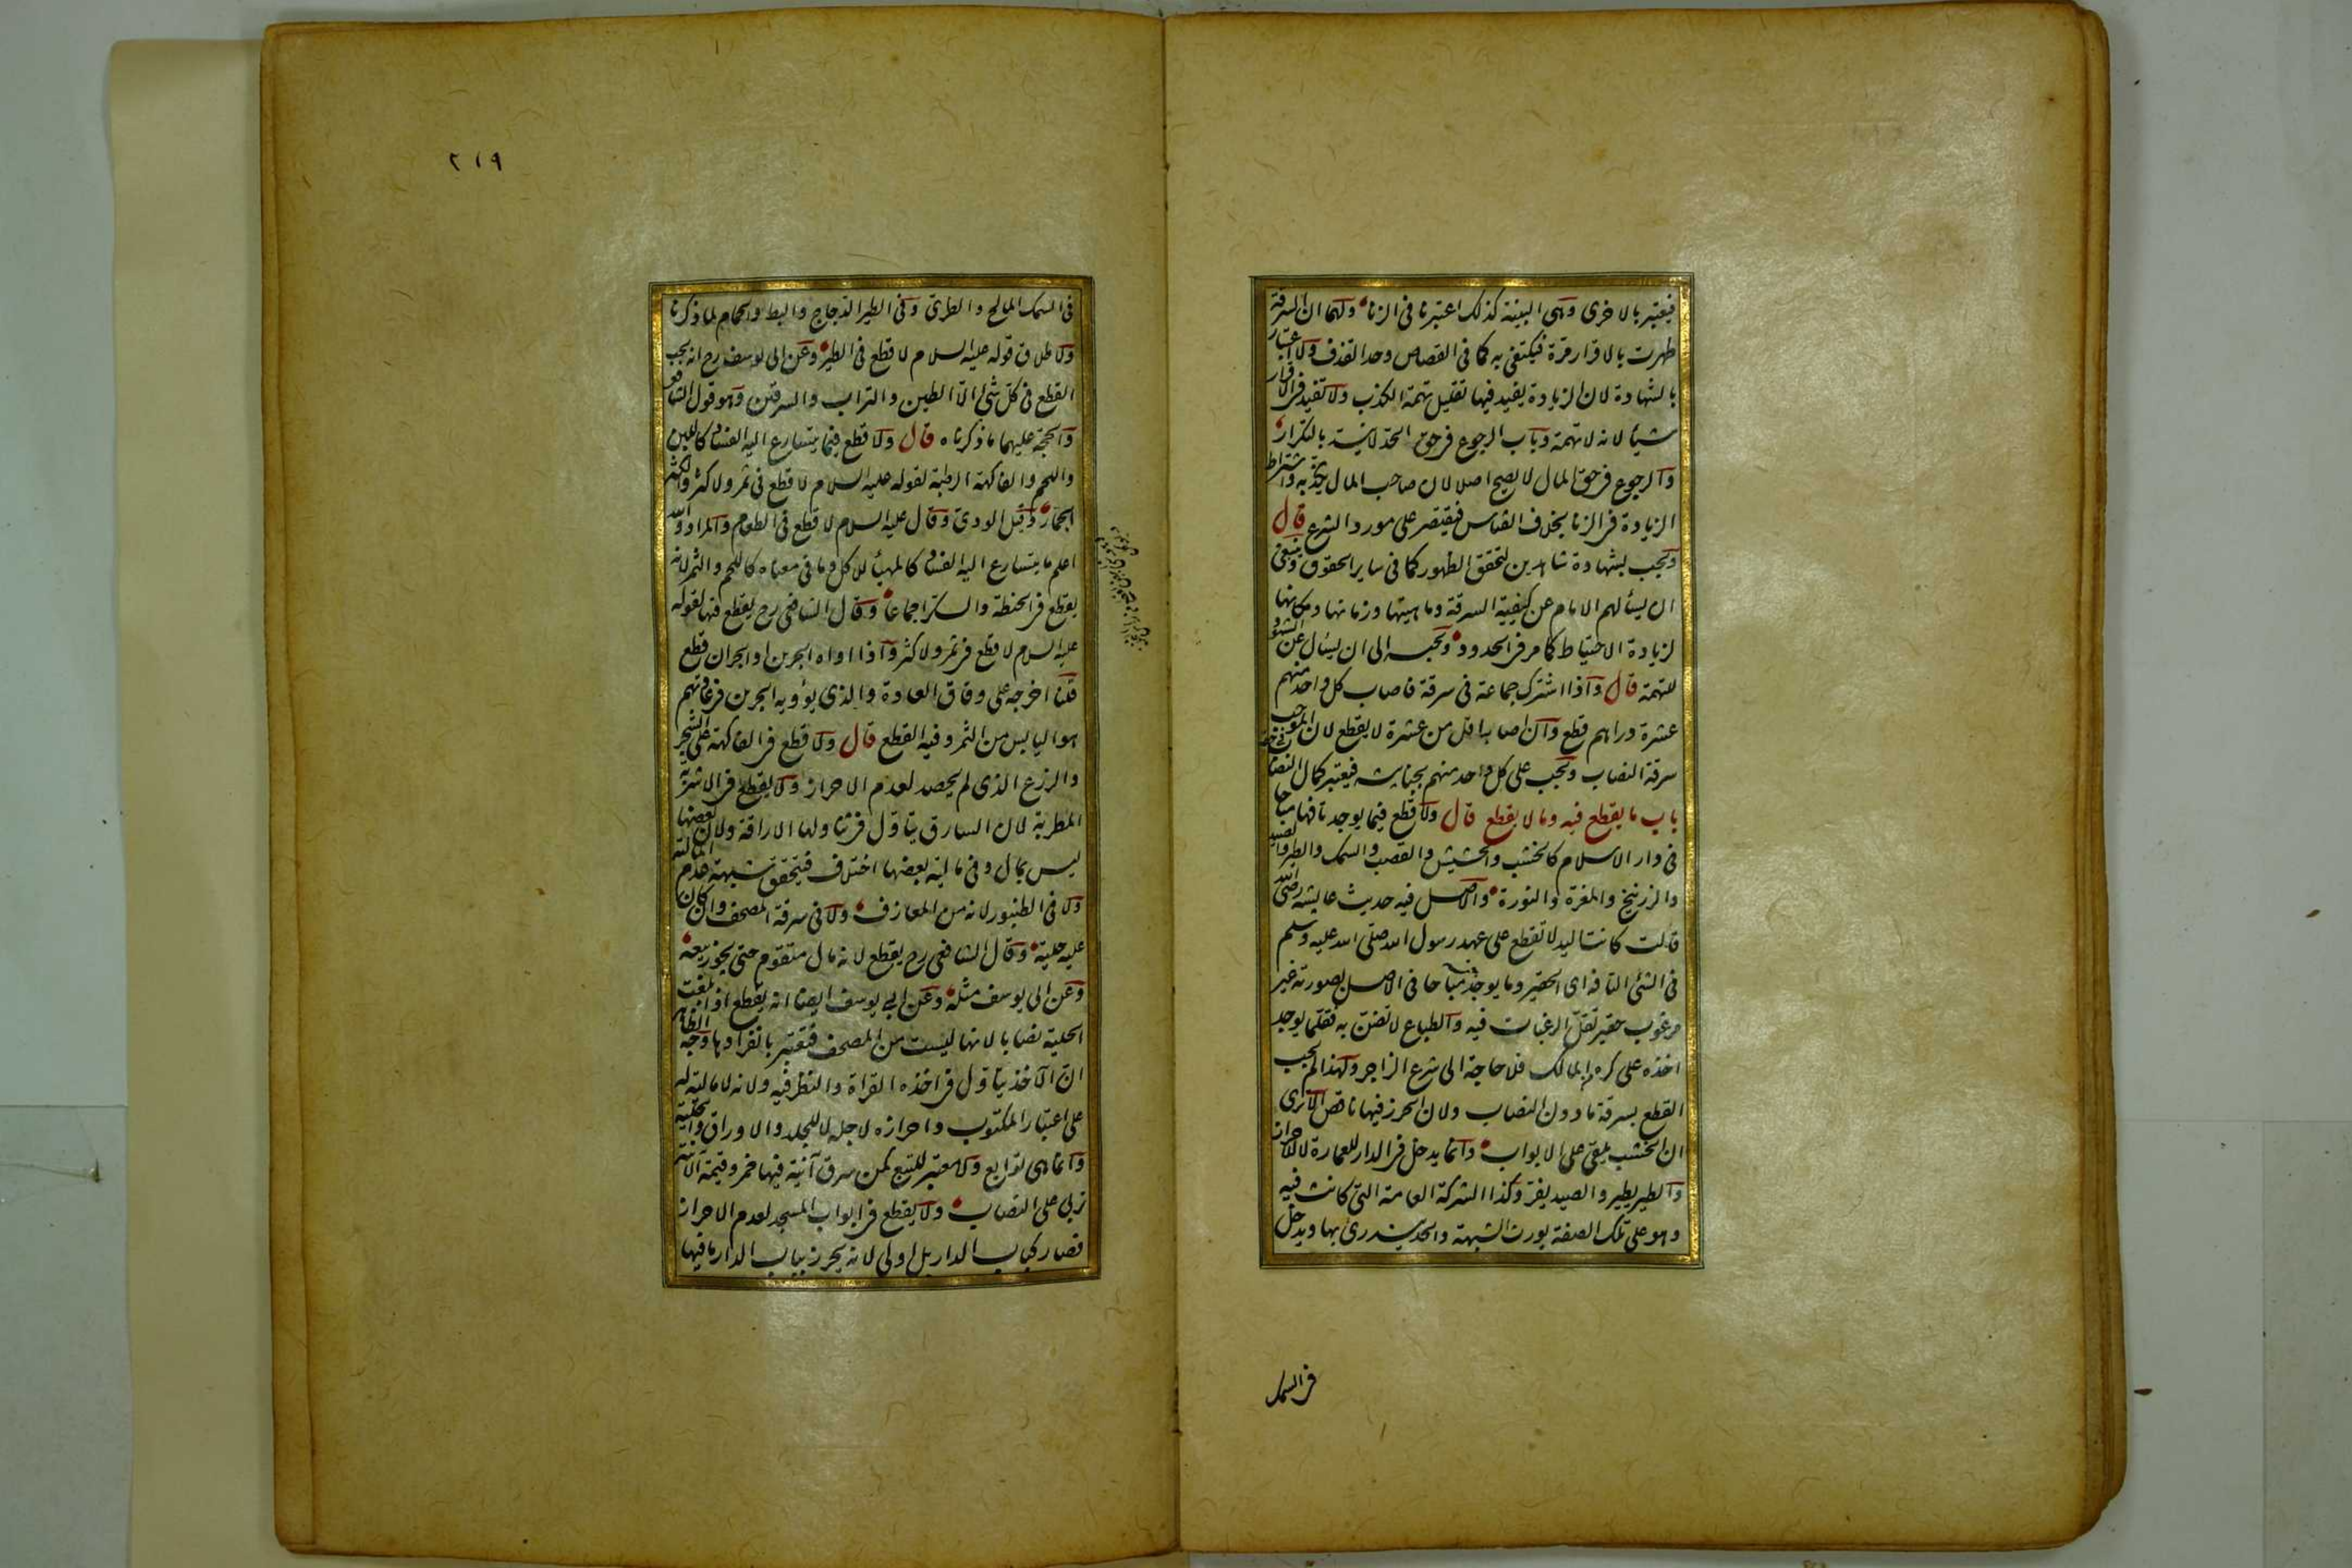 فيعتبر بالاخرى وهى البينة كذلك اعتبرنا فى الزنا ولهما ان السرقة
ظهرت بالاقرار مرة فيكتفى به كما فى القصاص وحد القذف ولا اعتبار
بالشهادة لان الزيادة يفيد فيها تقليل تهمة الكذب ولا تفيد فى الاقرار
شيئا لانه لا تهمة وباب الرجوع فى حق الحد لا ينسد بالتكرار
والرجوع فى حق المال لا يصح اصلا لان صاحب المال يكذبه واشتراط
الزيادة فى الزنا بخلاف القياس فيقتصر على مورد الشرع قال
ويجب بشهادة شاهدين لتحقق الظهور كما فى ساير الحقوق وينبغى
ان يسألهم الامام عن كيفية السرقة وماهيتها وزمانها ومكانها
لزيادة الاحتياط كما مر فى الحدود ويحبسه الى ان يسئال عن الشهود
للتهمة قال واذا اشترك جماعة فى سرقة فاصاب كل واحد منهم
عشرة دراهم قطع وان اصابه اقل من عشرة لا يقطع لان الموجب
سرقة النصاب ويجب على كل واحد منهم بجنايته فيعتبر كمال النصاب فى حقه
باب ما يقطع فيه وما لا يقطع قال ولا قطع فيما يوجد تافها مباحا
فى دار الاسلام كالخشب والحشيش والقصب والسمك والطير والصيد
والزرنيخ والمغرة والنورة والاصل فيه حديث عايشة رضى الله
قالت كانت اليد لا تقطع على عهد رسول الله صلى الله عليه وسلم
فى الشئ التافه اى الحقير وما يوجد جنسه مباحا فى الاصل بصورته غير
مرغوب حقير تقل الرغبات فيه والطباع لا تضن به فقلما يوجد
اخذه على كره المالك فلا حاجة الى شرع الزاجر ولهذا لم يجب
القطع بسرقة ما دون النصاب ولان الحرز فيها ناقص الا ترى
ان الخشب يلقى على الابواب وانما يدخل فى الدار للعمارة لا للاحراز
والطير يطير والصيد يفر وكذا الشركة العامة التى كانت فيه
وهو على تلك الصفة يورث الشبهة والحد يندرى بها ويدخل
فى السمك
٢١٩
فى السمك المالح والطرى وفى الطير الدجاج والبط والحمام لما ذكرنا
ولاطلاق قوله عليه السلام لا قطع فى الطير وعن ابى يوسف رح انه يجب
القطع فى كل شئ الا الطين والتراب والسرقين وهو قول الشافعى
والحجة عليهما ما ذكرناه قال ولا قطع فيما يتسارع اليه الفساد كاللبن
واللحم والفاكهة الرطبة لقوله عليه السلام لا قطع فى ثمر ولا كثر والكثر
الجمار وقيل الودى وقال عليه السلام لا قطع فى الطعام والمراد والله
اعلم ما يتسارع اليه الفساد كالمهيأ للاكل وما فى معناه كاللحم والثمر لانه
يقطع فى الحنطة والسكر اجماعا وقال الشافعى رح يقطع فيها لقوله
عليه السلام لا قطع فى ثمر ولا كثر واذا اواه الجرين او الجران قطع
قلنا اخرجه على وفاق العادة والذى يؤويه الجرين فى عادتهم
هو اليابس من الثمر وفيه القطع قال ولا قطع فى الفاكهة على الشجر
والزرع الذى لم يحصد لعدم الاحراز ولا يقطع فى الاشربة
المطربة لان السارق يتاول فى تناولها الاراقة ولان بعضها
ليس بمال وفى مالية بعضها اختلاف فيتحقق شبهة عدم المالية
ولا فى الطنبور لانه من المعازف ولا فى سرقة المصحف وان كان
عليه حلية وقال الشافعى رح يقطع لانه مال متقوم حتى يجوز بيعه
وعن ابى يوسف مثله وعن ابى يوسف ايضا انه يقطع اذا بلغت
الحلية نصابا لانها ليست من المصحف فيعتبر بانفرادها وجه الظاهر
ان الآخذ يتاول فى اخذه القراة والنظر فيه ولانه لا مالية له
على اعتبار المكتوب واحرازه لاجله لا للجلد والاوراق والحلية
وانما هى توابع ولا معتبر للتبع كمن سرق آنية فيها خمر وقيمة الآنية
تربى على النصاب ولا يقطع فى ابواب المسجد لعدم الاحراز
فصار كباب الدار بل اولى لانه يحرز بباب الدار ما فيها